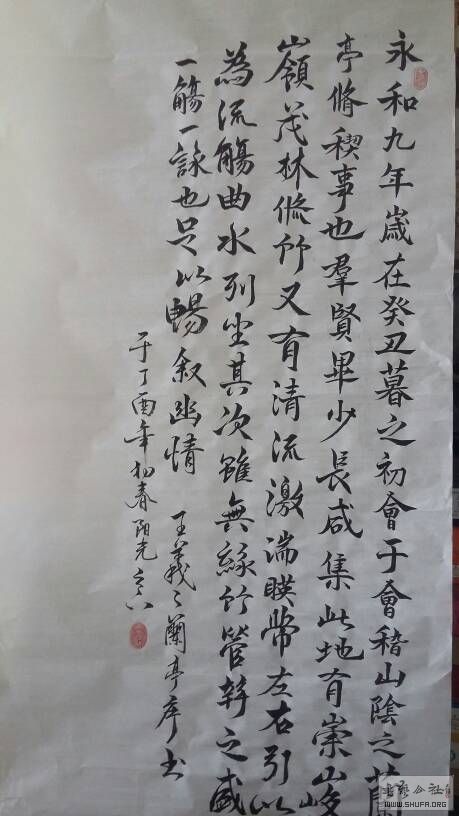 永和九年歲在癸丑暮之初會于會稽山陰之蘭
亭脩稧事也羣賢畢少長咸集此地有崇山峻
嶺茂林修竹又有清流激湍暎帶左右引以
為流觴曲水列坐其次雖無絲竹管絃之盛
一觴一詠也足以暢叙幽情 王羲之蘭亭序书
于丁酉年初春陽光
WWW.SHUFA.ORG